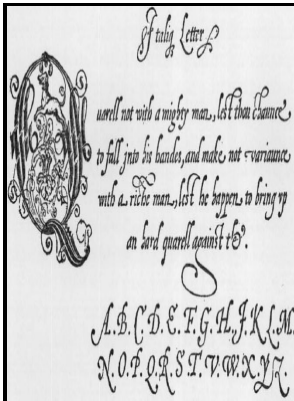 Italiq Letter
Quarell not with a mighty man, lest thou chaunce
to fall into his handes, and make not variaunce
with a riche man, lest he happen to bring vp
an hard quarell against the.
A.B.C.D.E.F.G.H.J.K.L.M.
N.O.P.Q.R.S.T.V.W.X.Y.Z.